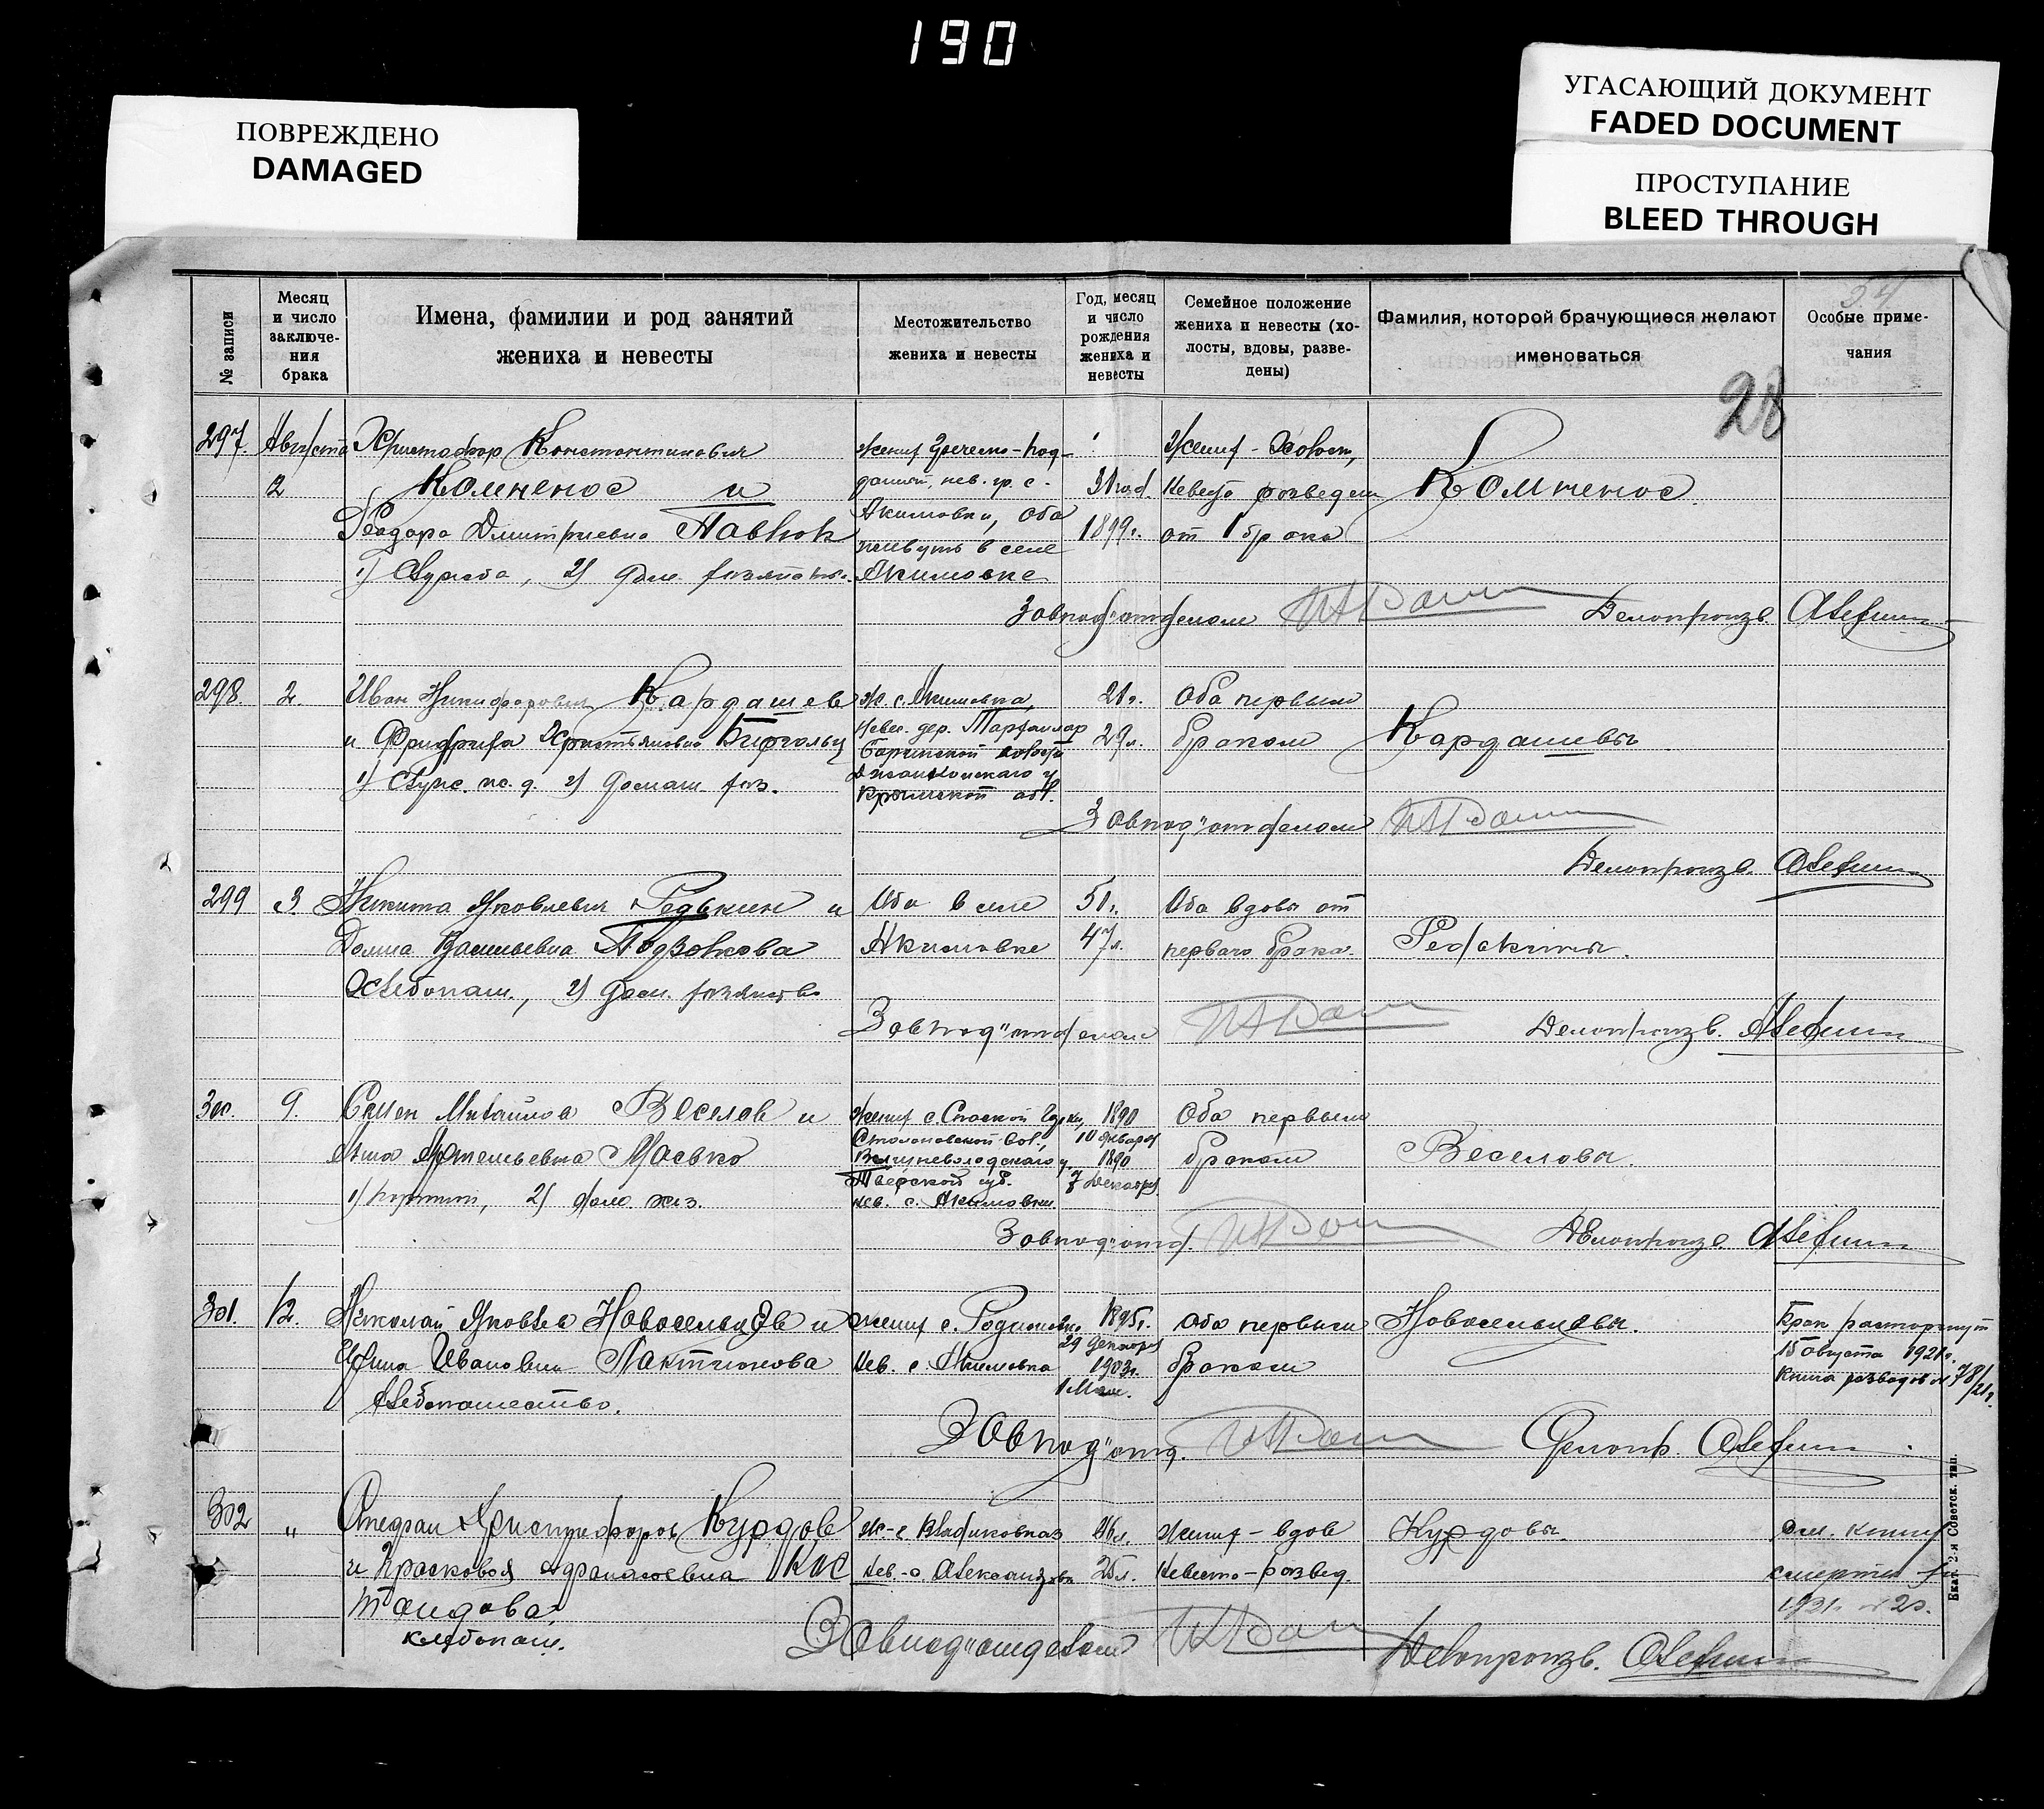 190
ПОВРЕЖДЕНО
DAMAGED
УГАСАЮЩИЙ ДОКУМЕНТ
FADED DOCUMENT
ПРОСТУПАНИЕ
BLEED THROUGH
№ записи
Месяц и число заключе-ния брака
Имена, фамилии и род занятий жениха и невесты
Местожительство жениха и невесты
Год, месяц и число рождения жениха и невесты
Семейное положение жениха и невесты (хо-лосты, вдовы, разве-дены)
Фамилия, которой брачующиеся желают именоваться
Особые приме-чания
28
297. Августа Христофор Константинович
2 Комненос и
Феодора Дмитриевна Павлюк
1) Служба, 2) дом. хозяйство.
жених Греческо-под-
даный, нев. гр. с.
Акимовки, оба
живут в селе
Акимовке
31 год.
1899г.
Жених - Холост,
Невеста разведен
от 1 брака
Комненос
Завпод"отделом
Делопроизв.
298. 2. Иван Никифорович Кардашев
и Фридрика Християновна Бирхольц
1) Служ. ж. д. 2) домаш. хоз.
ж. с. Акимовка,
Невес. дер.
волости
Джанкойскаго у
Крымской обл.
21г.
29л.
Оба первым
браком
Кардашевы
Завпод"отделом
Делопроизв.
299 3 Никита Яковлевич Редькин и
Домна Васильевна Подзолкова
Хлебопаш., 2) дом. хозяйство
Оба в селе
Акимовке
50г.
47л.
Оба вдовы от
перваго брака.
Редькины.
Завпод"отделом
Делопроизв.
300. 9. Семен Михайлов Веселов и
Анна Маслко
1) портной, 2) дом. хоз.
жених с.
вол.,
Вышневолодскаго у.
Тверской губ.
нев. с. Акимовки.
1890
10 января
1890
7 Декабря
Оба первым
браком
Веселовы.
Завпод"отд.
Делопроизв.
301. 12. Николай Яковлев Новосельцев и
Ивановна Лактионова
Хлебопашество.
жених с. Родионовка
нев. с. Акимовка
1895г.
29 декабря
1903г.
1 Мая.
Оба первым
браком
Новосельцевы.
Брак расторгнут
15 августа 1921г.
Книга разводов № 78/21г.
Завпод"отд.
Делопр.
302 " Стефан Христофоров Курдов
и Прасковья Афанасьевна Кос
тандова
хлебопаш.
ж-с Владиковказ
Нев.-с. Александровка
26л.
25л.
жених-вдов
Невеста-развед.
Курдовы.
См. книгу
смерти за
1921г. № 20.
Завпод"отделом
Делопроизв.
Екат. 2-я Советск. тип.